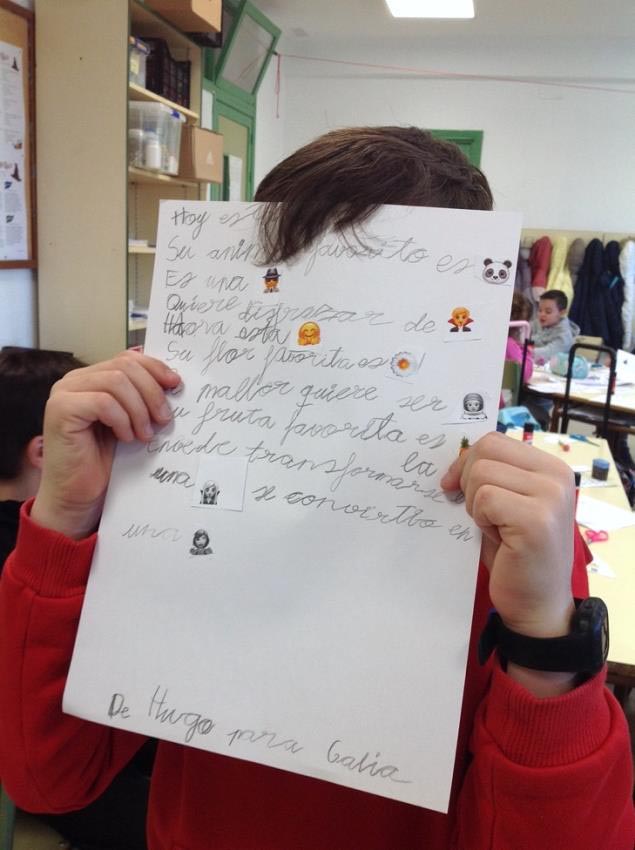 Hoy es
Su anim favorito es
Es una
Quiere disfrazar de
Ahora esta
Su flor favorita es
mallor quiere ser
su fruta favorita es la
puede transformarse
una se convirtio en
una
De Hugo para Galia